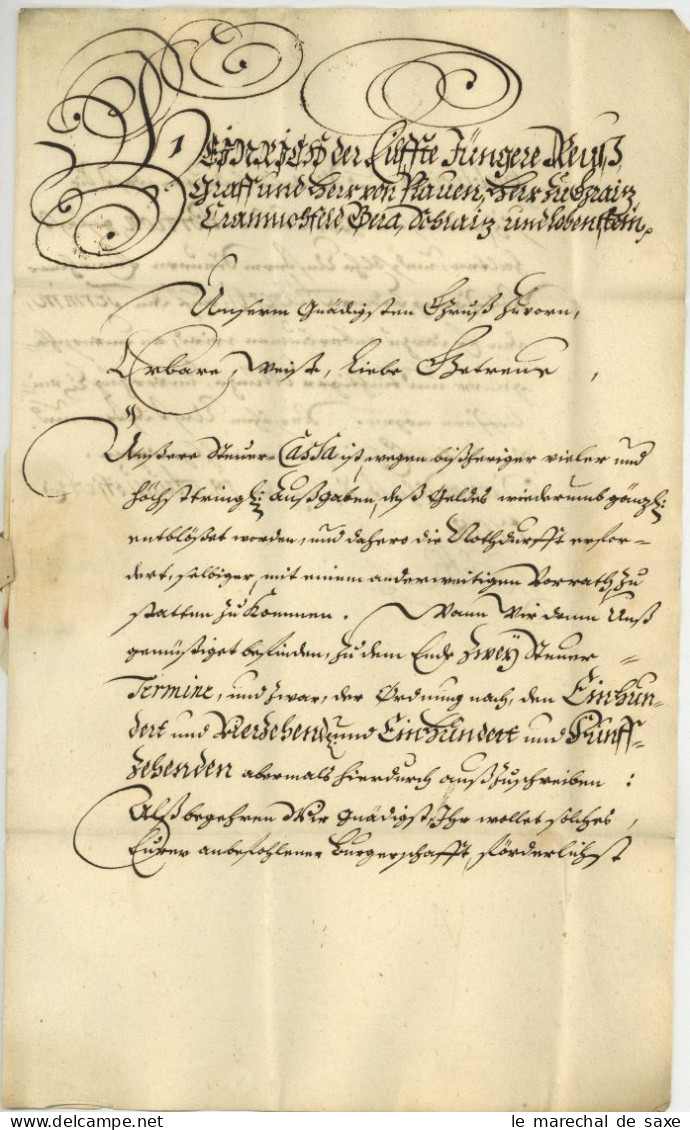 HEINRICH der Eilffte Jüngere Reuß,
Graff und Herr von Plauen, Herr zu Graitz
Crannichfeld Gera, Schlaitz und Lobenstein,
Unsern Gnädigsten Gruß zuvorn,
Erbare, Weise, Liebe Getreue,
Unsere Steuer-Cassa ist, wegen bißheriger vieler und
höchstdringl: Außgaben, deß Geldes wiederumb gäntzl:
entblößet worden, und dahero die Nothdurfft erfor-
dert, selbiger, mit einem anderweitigen Vorrath, zu
statten zu kommen. Wann Wir denn Unß
gemüßiget befinden, zu dem Ende zwey Steuer-
Termine, und zwar, der Ordnung nach, den Einhun-
dert und Vierzehend und Einhundert und Fünff-
zehenden abermals hierdurch außzuschreiben:
Alß begehren Wir gnädigst, Ihr wollet solches,
Eurer anbefohlener Burgerschafft, förderlichst
le marechal de saxe